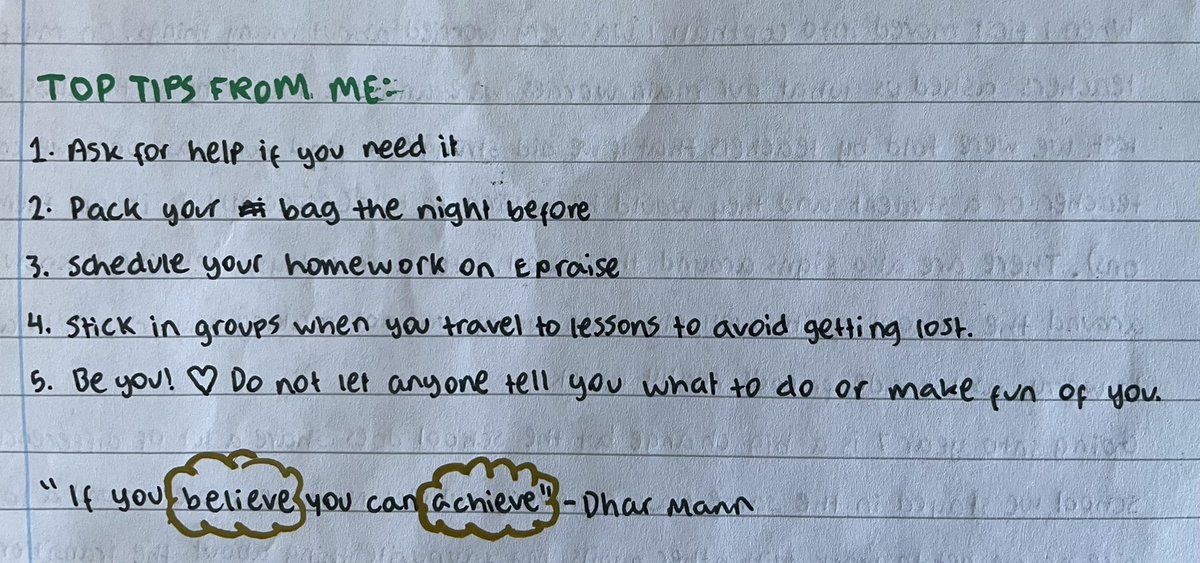 TOP TIPS FROM ME:-
1. Ask for help if you need it
2. Pack your bag the night before
3. Schedule your homework on Epraise
4. Stick in groups when you travel to lessons to avoid getting lost.
5. Be you! ♡ Do not let anyone tell you what to do or make fun of you.
"If you believe you can achieve" - Dhar Mann